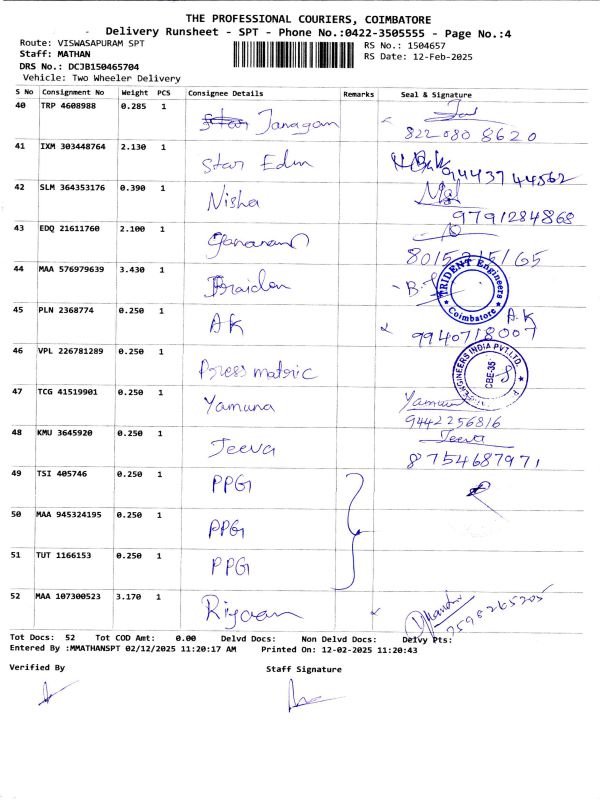 THE PROFESSIONAL COURIERS, COIMBATORE
Delivery Runsheet - SPT - Phone No.:0422-3505555 - Page No.:4
Route: VISWASAPURAM SPT
RS No.: 1504657
Staff: MATHAN
RS Date: 12-Feb-2025
DRS No.: DCJB150465704
Vehicle: Two Wheeler Delivery
S No Consignment No Weight PCS Consignee Details Remarks Seal & Signature
40 TRP 4608988 0.285 1 Janagan
822 080 8620
41 IXM 303448764 2.130 1 Star Edun
9443744562
42 SLM 364353176 0.390 1 Nisha
9791284868
43 EDQ 21611760 2.100 1
8015215165
44 MAA 576979639 3.430 1
TRIDENT Engineers
Coimbatore
45 PLN 2368774 0.250 1 AK A.K
9940718007
46 VPL 226781289 0.250 1 Press matric
ENGINEERS INDIA PVT.LTD.
CBE-35
47 TCG 41519901 0.250 1 Yamuna Yamuna
9442256816
48 KMU 3645920 0.250 1 Jeeva Jeeva
8754687971
49 TSI 405746 0.250 1 PPG
50 MAA 945324195 0.250 1 PPG
51 TUT 1166153 0.250 1 PPG
52 MAA 107300523 3.170 1 Riyaan
7598265205
Tot Docs: 52 Tot COD Amt: 0.00 Delvd Docs: Non Delvd Docs: Delvy Pts:
Entered By :MMATHANSPT 02/12/2025 11:20:17 AM Printed On: 12-02-2025 11:20:43
Verified By Staff Signature